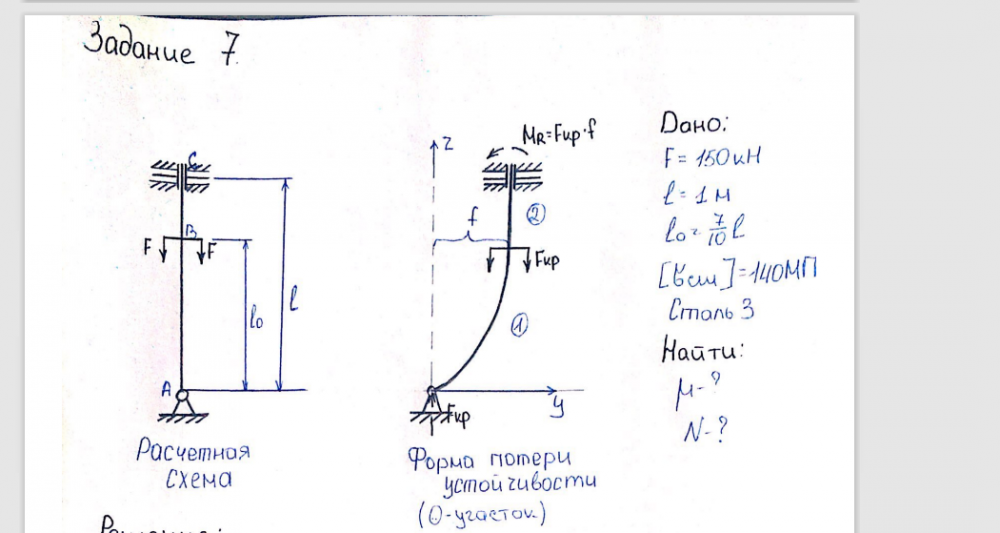 Задание 7.
C
B
F
F
l₀
l
A
Расчетная
схема
z
MR=Fкр·f
f
②
Fкр
①
Fкр
y
Форма потери
устойчивости
(0-участок)
Дано:
F = 150 кН
l = 1 м
l₀ = 7/10 l
[σсж] = 140МП
Сталь 3
Найти:
μ-?
N-?